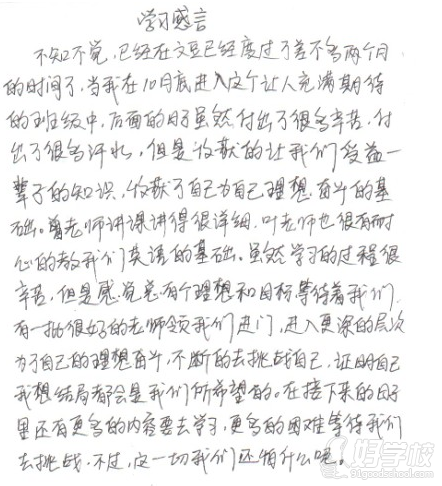 学习感言
不知不觉,已经在文豆已经度过了差不多两个月
的时间了,当我在10月底进入这个让人充满期待
的班级中,后面的日子虽然付出了很多辛苦,付
出了很多汗水,但是收获的让我们受益一
辈子的知识,收获了自己为自己理想奋斗的基
础。曾老师讲课讲得很详细,叶老师也很有耐
心的教我们英语的基础。虽然学习的过程很
辛苦,但是感觉总有个理想和目标等待着我们,
有一批很好的老师领我们进门,进入更深的层次
为了自己的理想奋斗,不断的去挑战自己,证明自己
我想结局都会是我们所希望的。在接下来的日子
里还有更多的内容要去学习,更多的困难等待我们
去挑战,不过,这一切我们还怕什么呢。
好学校